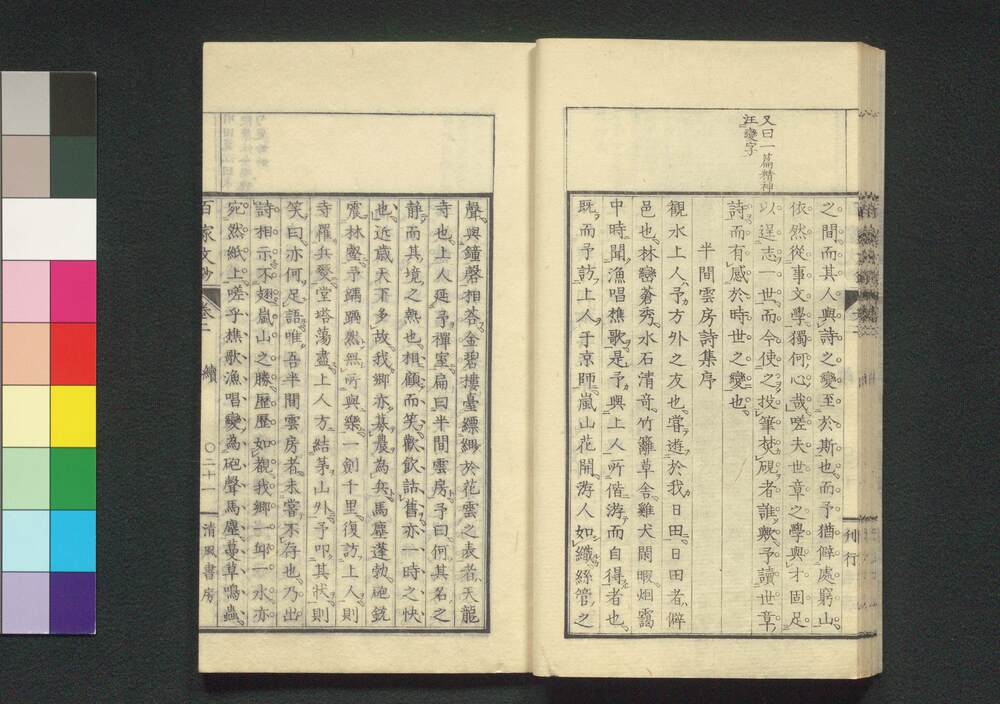 又曰一篇精神
注變字
之間而其人與詩之變至於斯也而予猶僻處窮山
依然從事文學獨何心哉嗟夫世章之學與才固足
以逞志一世而今使之投筆焚硯者誰歟予讀世章
詩而有感於時世之變也
半間雲房詩集序
觀水上人予方外之友也嘗遊於我日田日田者僻
邑也林巒蒼秀水石清奇竹籬草舍雞犬閑暇烟靄
中時聞漁唱樵歌是予與上人所偕游而自得者也
既而予訪上人于京師嵐山花開游人如織絲管之
聲與鐘磬相荅金碧樓臺縹緲於花雲之表者天龍
寺也上人延予禪室扁曰半間雲房予曰何其名之
静而其境之熱也相顧而笑歡飲話舊亦一時之快
也近歳天下多故我郷亦募農為兵馬塵蓬勃砲銃
震林壑予踽踽然無所與樂一劍千里復訪上人則
寺罹兵燹堂塔蕩盡上人方結茅山外予叩其狀則
笑曰亦何足語唯吾半間雲房者未嘗不存也乃出
詩相示不翅嵐山之勝歴歴如覩我郷一邱一水亦
宛然紙上嗟乎樵歌漁唱變為砲聲馬塵蔓草鳴蟲
百家文抄 卷二 續 〇二十一 清風書房
刊行